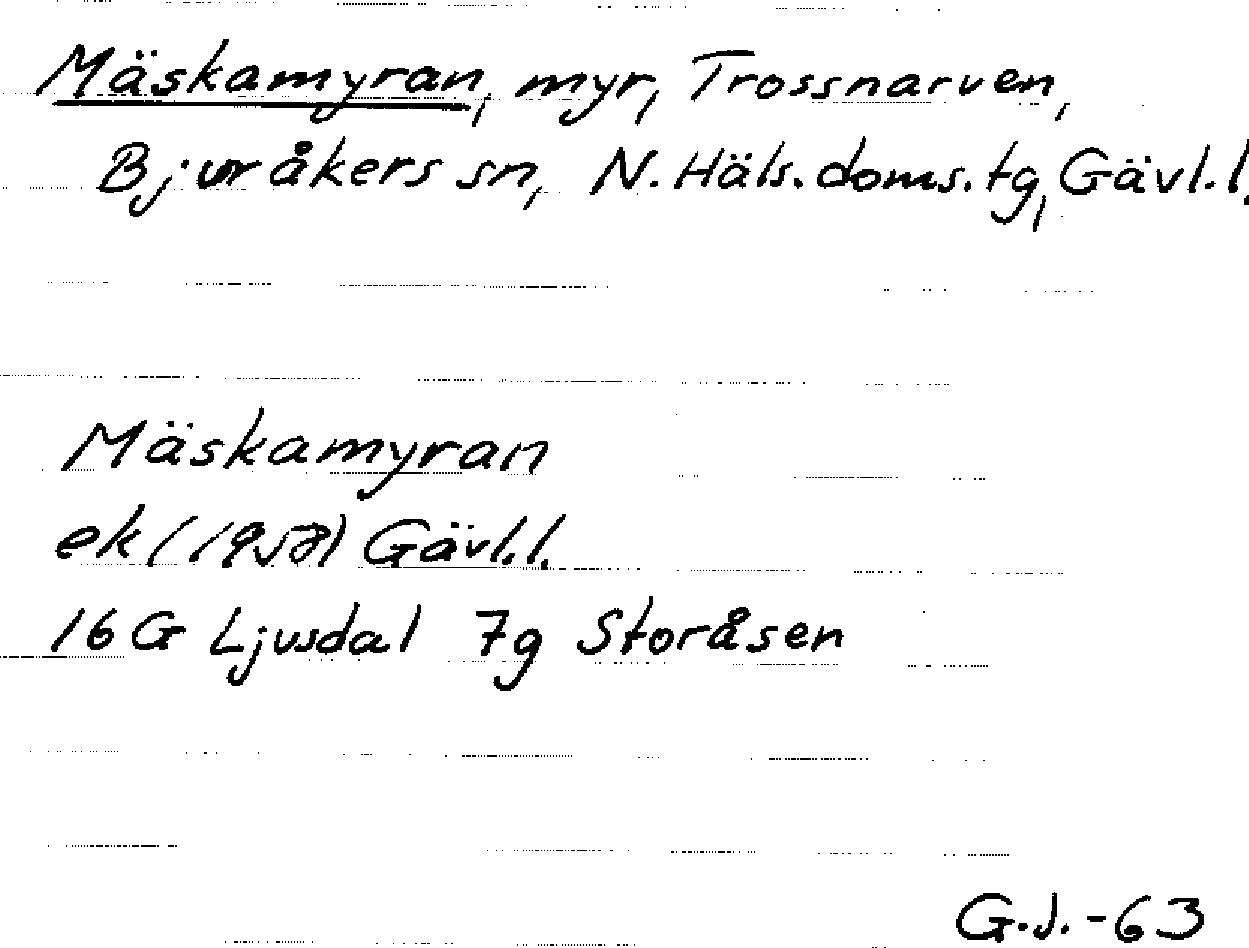 Mäskamyran, myr, Trossnarven,
Bjuråkers sn, N. Häls. doms. tg, Gävl. l.
Mäskamyran
ek (1958) Gävl. l.
16 G Ljusdal 7g Storåsen
G.J. -63